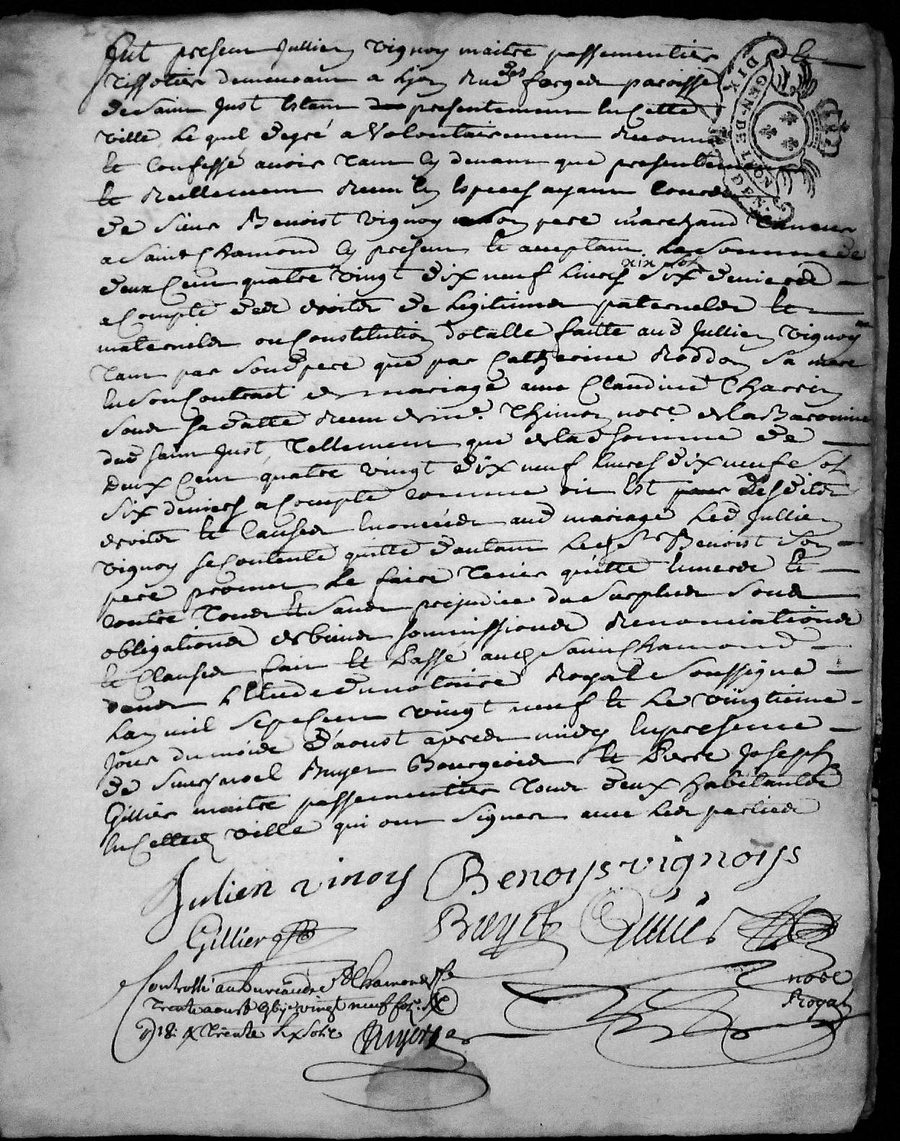 fut present Jullien vignoy maitre passementier
Tissotier demeurant a Lyon Rue des farges paroisse
de Saint Just Estant presentement en Cette
ville Le quel de gré a volontairement Reconnu
et Confessé avoir Tant cy devant que presentem
et Reellement Receu en Especes ayant Cours
de Sieur Benoist vignoy son pere marchand
a Saint Chamond cy present et acceptant La Somme de
deux Cent quatre vingt dix neuf Livres xix sols six deniers
a Compte des droits de Legitimes paternelde et
maternelde ou Constitution dotalle faitte aud Jullien vignoy
Tant par Sond pere que par Catherine Roddon Sa mere
en son Contrat de mariage avec Claudine
Sous Sa datte Receu de me Thinon nore de La Baronnie
dud Saint Just, Tellement que de lad Somme de
deux Cent quatre vingt dix neuf Livres dix neuf sol
six deniers a Compte comme dit Est desdits
droits et Causes Enoncées aud mariage Led Jullien
vignoy se Contente quitte d'autant Led Sr Benoist son
pere promet Le faire Tenir quitte Envers et
contre Tous et Sans prejudice du Surplus Sous
obligations de biens Sommissions Renonciations
et Clauses fait et Passé aud Saint Chamond
dans L'Etude du notaire Royal Soussigné
L'an mil Sept Cent vingt neuf et Le vingtieme
Jour du mois d'aoust apres midy En presence
de Sieur Bourgeois et Pierre Joseph
Gillier maitre passementier Tous deux habitants
En Cette d ville qui ont Signer avec Les parties
Julien vinoy Benoys vignoys
Gillier
nore
Royal
Controllé au bureau de St Chamond Le
Trente aoust vingt neuf fo.
Trente six sols
DIX
GEN DE LYON
DEN